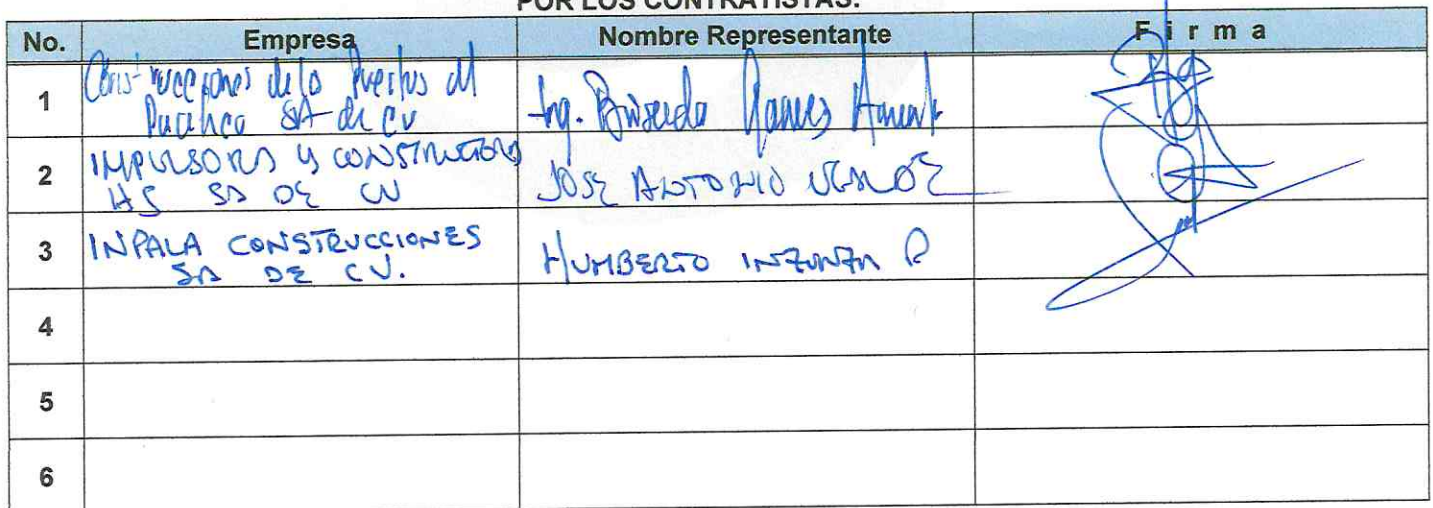 POR LOS CONTRATISTAS:
No. Empresa Nombre Representante Firma
1 Construcciones de lo Puertos del
Pacifico SA de CV Ing.
2 IMPULSORA Y CONSTRUCTORA
HS SA DE CV JOSE ANTONIO
3 INPALA CONSTRUCCIONES
SA DE CV. HUMBERTO INZUNZA R
4
5
6